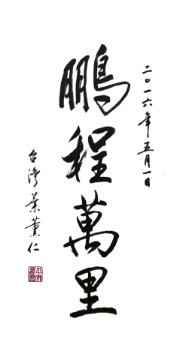 二〇一六年五月一日
鵬程萬里
台灣葉薰仁